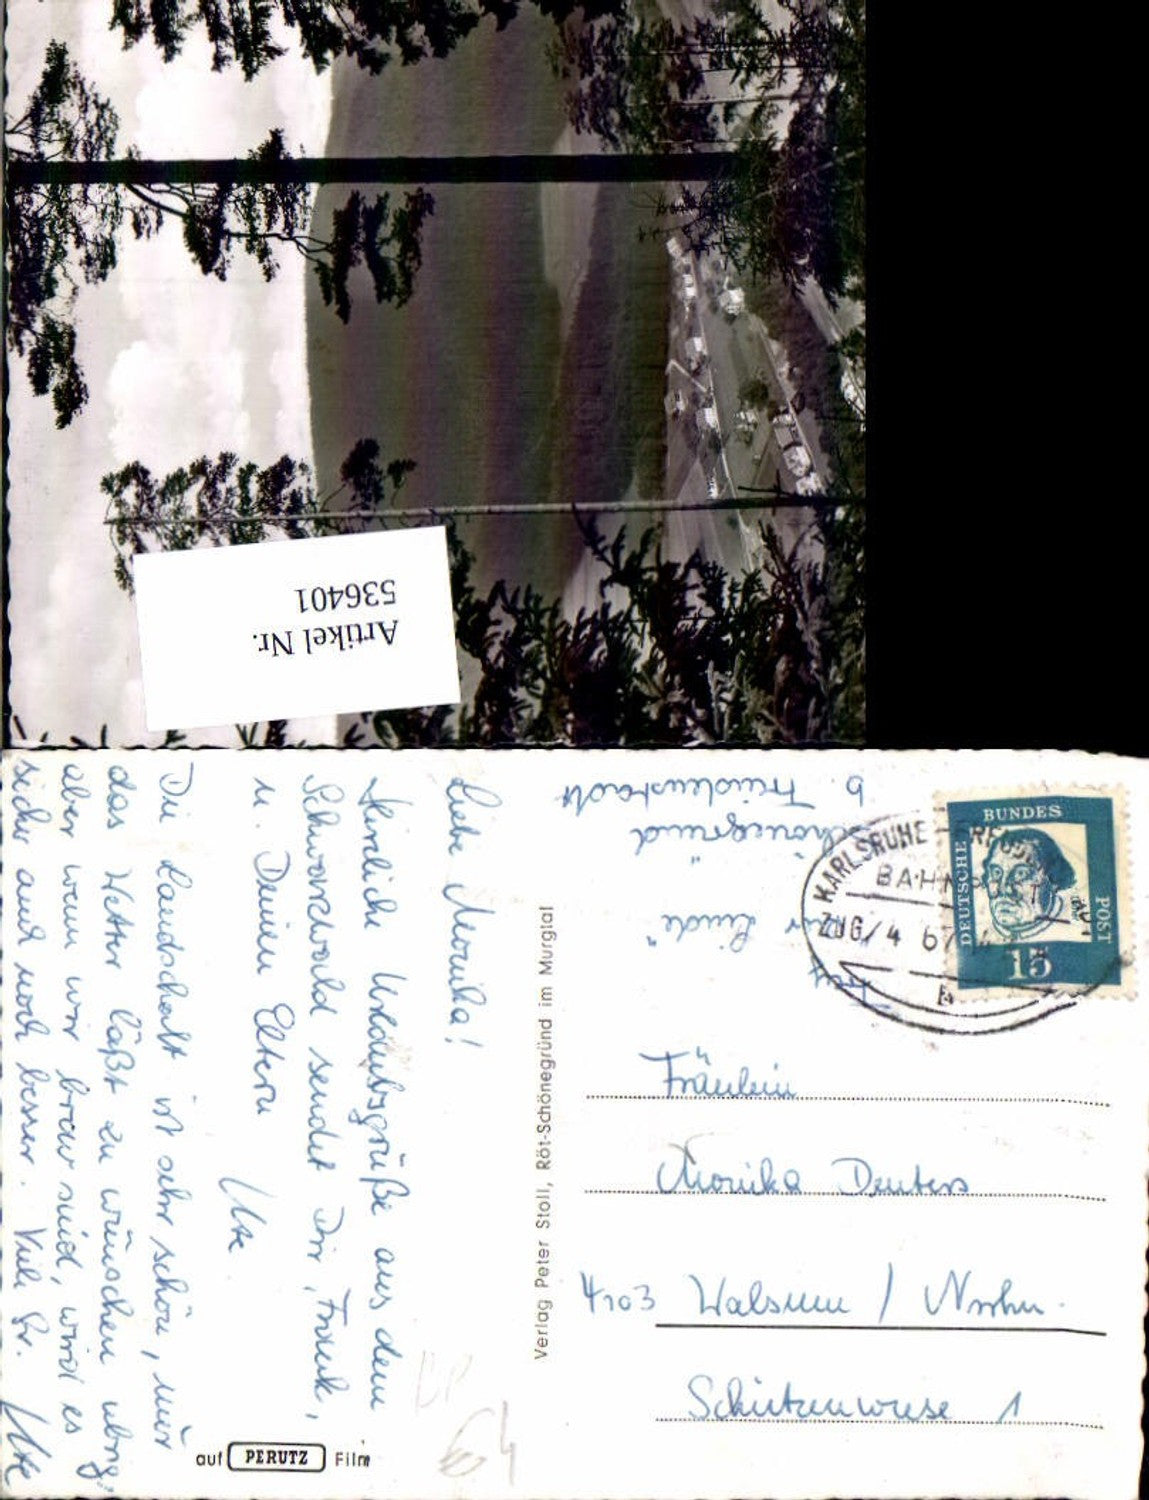 Artikel Nr.
536401
Liebe Monika!
Herzliche Urlaubsgrüße aus dem
Schwarzwald sendet Dir, Frank,
u. Deinen Eltern
Ute
Die Landschaft ist sehr schön, nur
das Wetter läßt zu wünschen übrig,
aber wenn wir brav sind, wird es
sicher auch noch besser. Viele Gr. Ute
auf PERUTZ Film
Verlag Peter Stoll, Röt-Schönegründ im Murgtal
"zur Linde"
Schönegründ
b. Freudenstadt
DEUTSCHE BUNDES POST
15
KARLSRUHE
BAHNPOST
ZUG/4 67
Fräulein
Monika Deuters
4103 Walsum / Nrrhn.
Schützenwiese 1